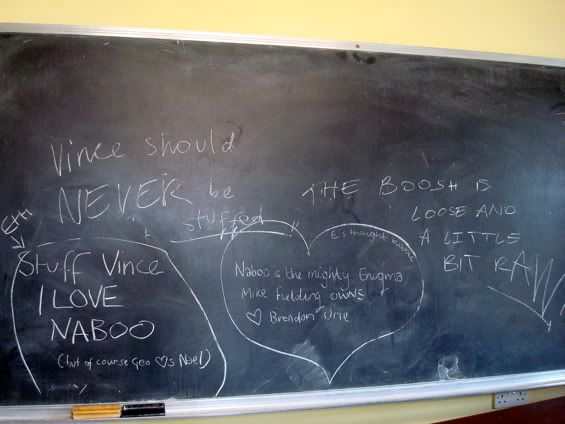 Vince should
NEVER be
stuffed
THE BOOSH IS
LOOSE AND
A LITTLE
BIT RAW
Stuff Vince
I LOVE
NABOO
(but of course Geo. ♡s Noel)
E's thought bubble
Naboo is the mighty Enigma
Mike Fielding owns
♡ Brendon Urie